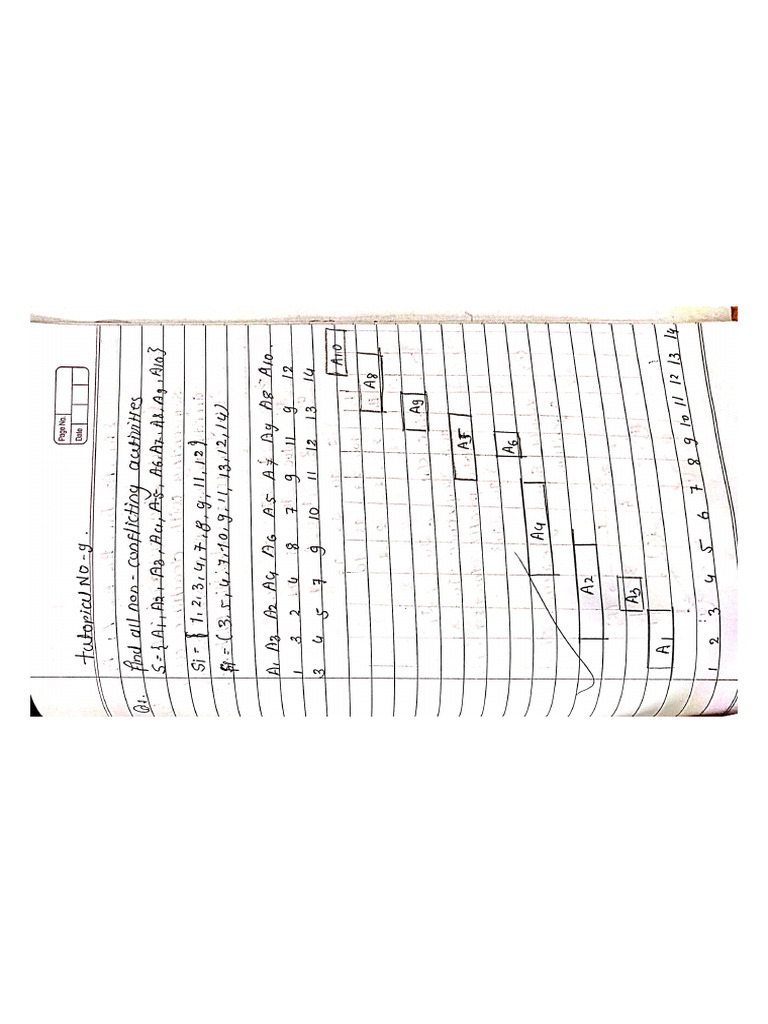 Page No.
Date
tutopical No-9.
Q1. find all non-conflicting activities
S = {A1, A2, A3, A4, A5, A6, A7, A8, A9, A10}
Si = { 1, 2, 3, 4, 7, 8, 9, 9, 11, 12}
fi = (3, 5, 4, 7, 10, 9, 11, 13, 12, 14)
A1 A3 A2 A4 A6 A5 A7 A9 A8 A10.
1 3 2 4 8 7 9 11 9 12
3 4 5 7 9 10 11 12 13 14
A10
A8
A9
A5
A6
A4
A2
A3
A1
1 2 3 4 5 6 7 8 9 10 11 12 13 14